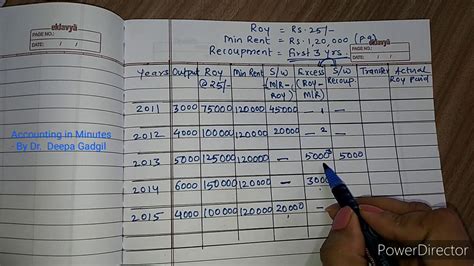 eklavya
PAGE NO.:
DATE: / /
Roy = Rs. 25/-
Min Rent = Rs. 1,20,000 (p.a)
Recoupment = First 3 yrs.
eklavya
PAGE NO.:
DATE: / /
Years Output Roy @ 25/- Min Rent S/W (M/R - Roy) Excess (Roy - M/R) S/W Recoup. Transfer Actual Roy Paid
2011 3000 75000 120000 45000 - 1 -
2012 4000 100000 120000 20000 - 2 -
2013 5000 125000 120000 - 5000 3 5000
2014 6000 150000 120000 - 3000
2015 4000 100000 120000 20000 -
Accounting in Minutes
- By Dr. Deepa Gadgil
PowerDirector